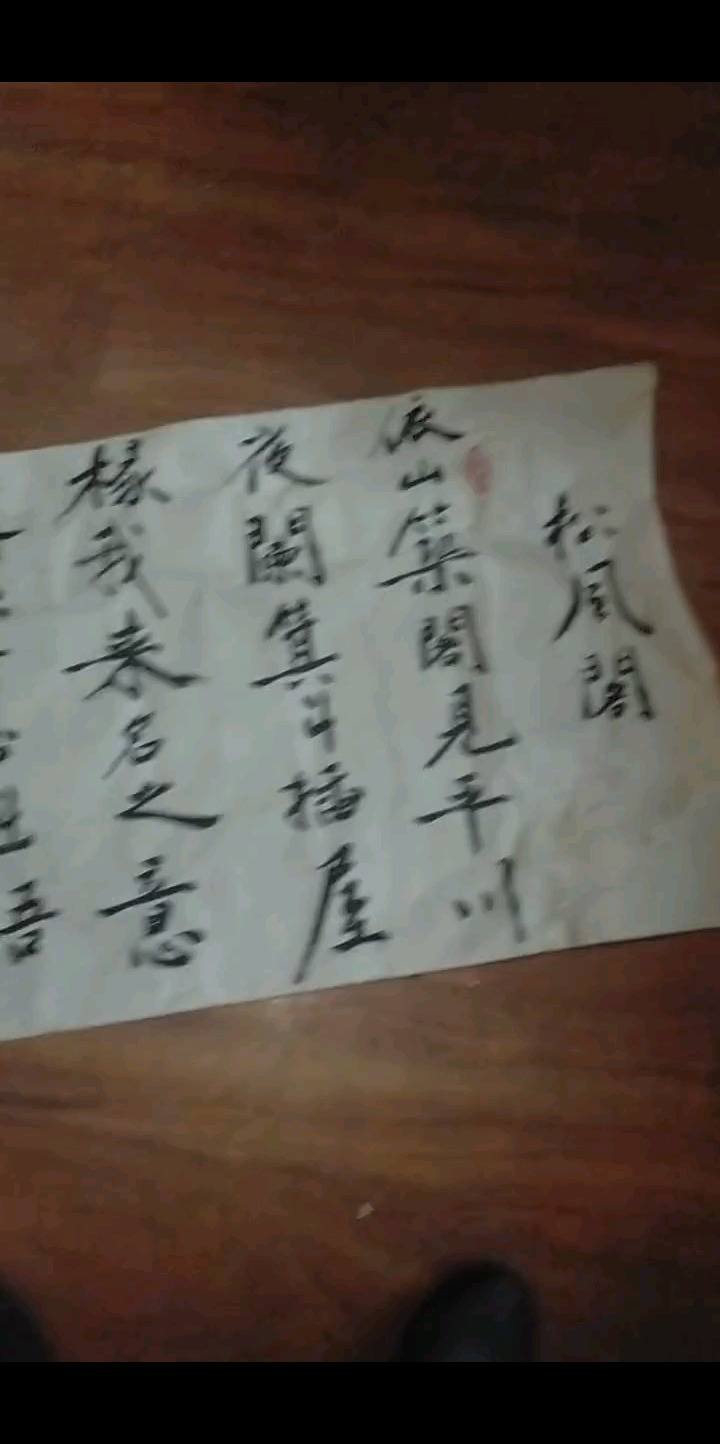 松風閣
依山築閣見平川
夜闌箕斗插屋
椽我来名之意
吾